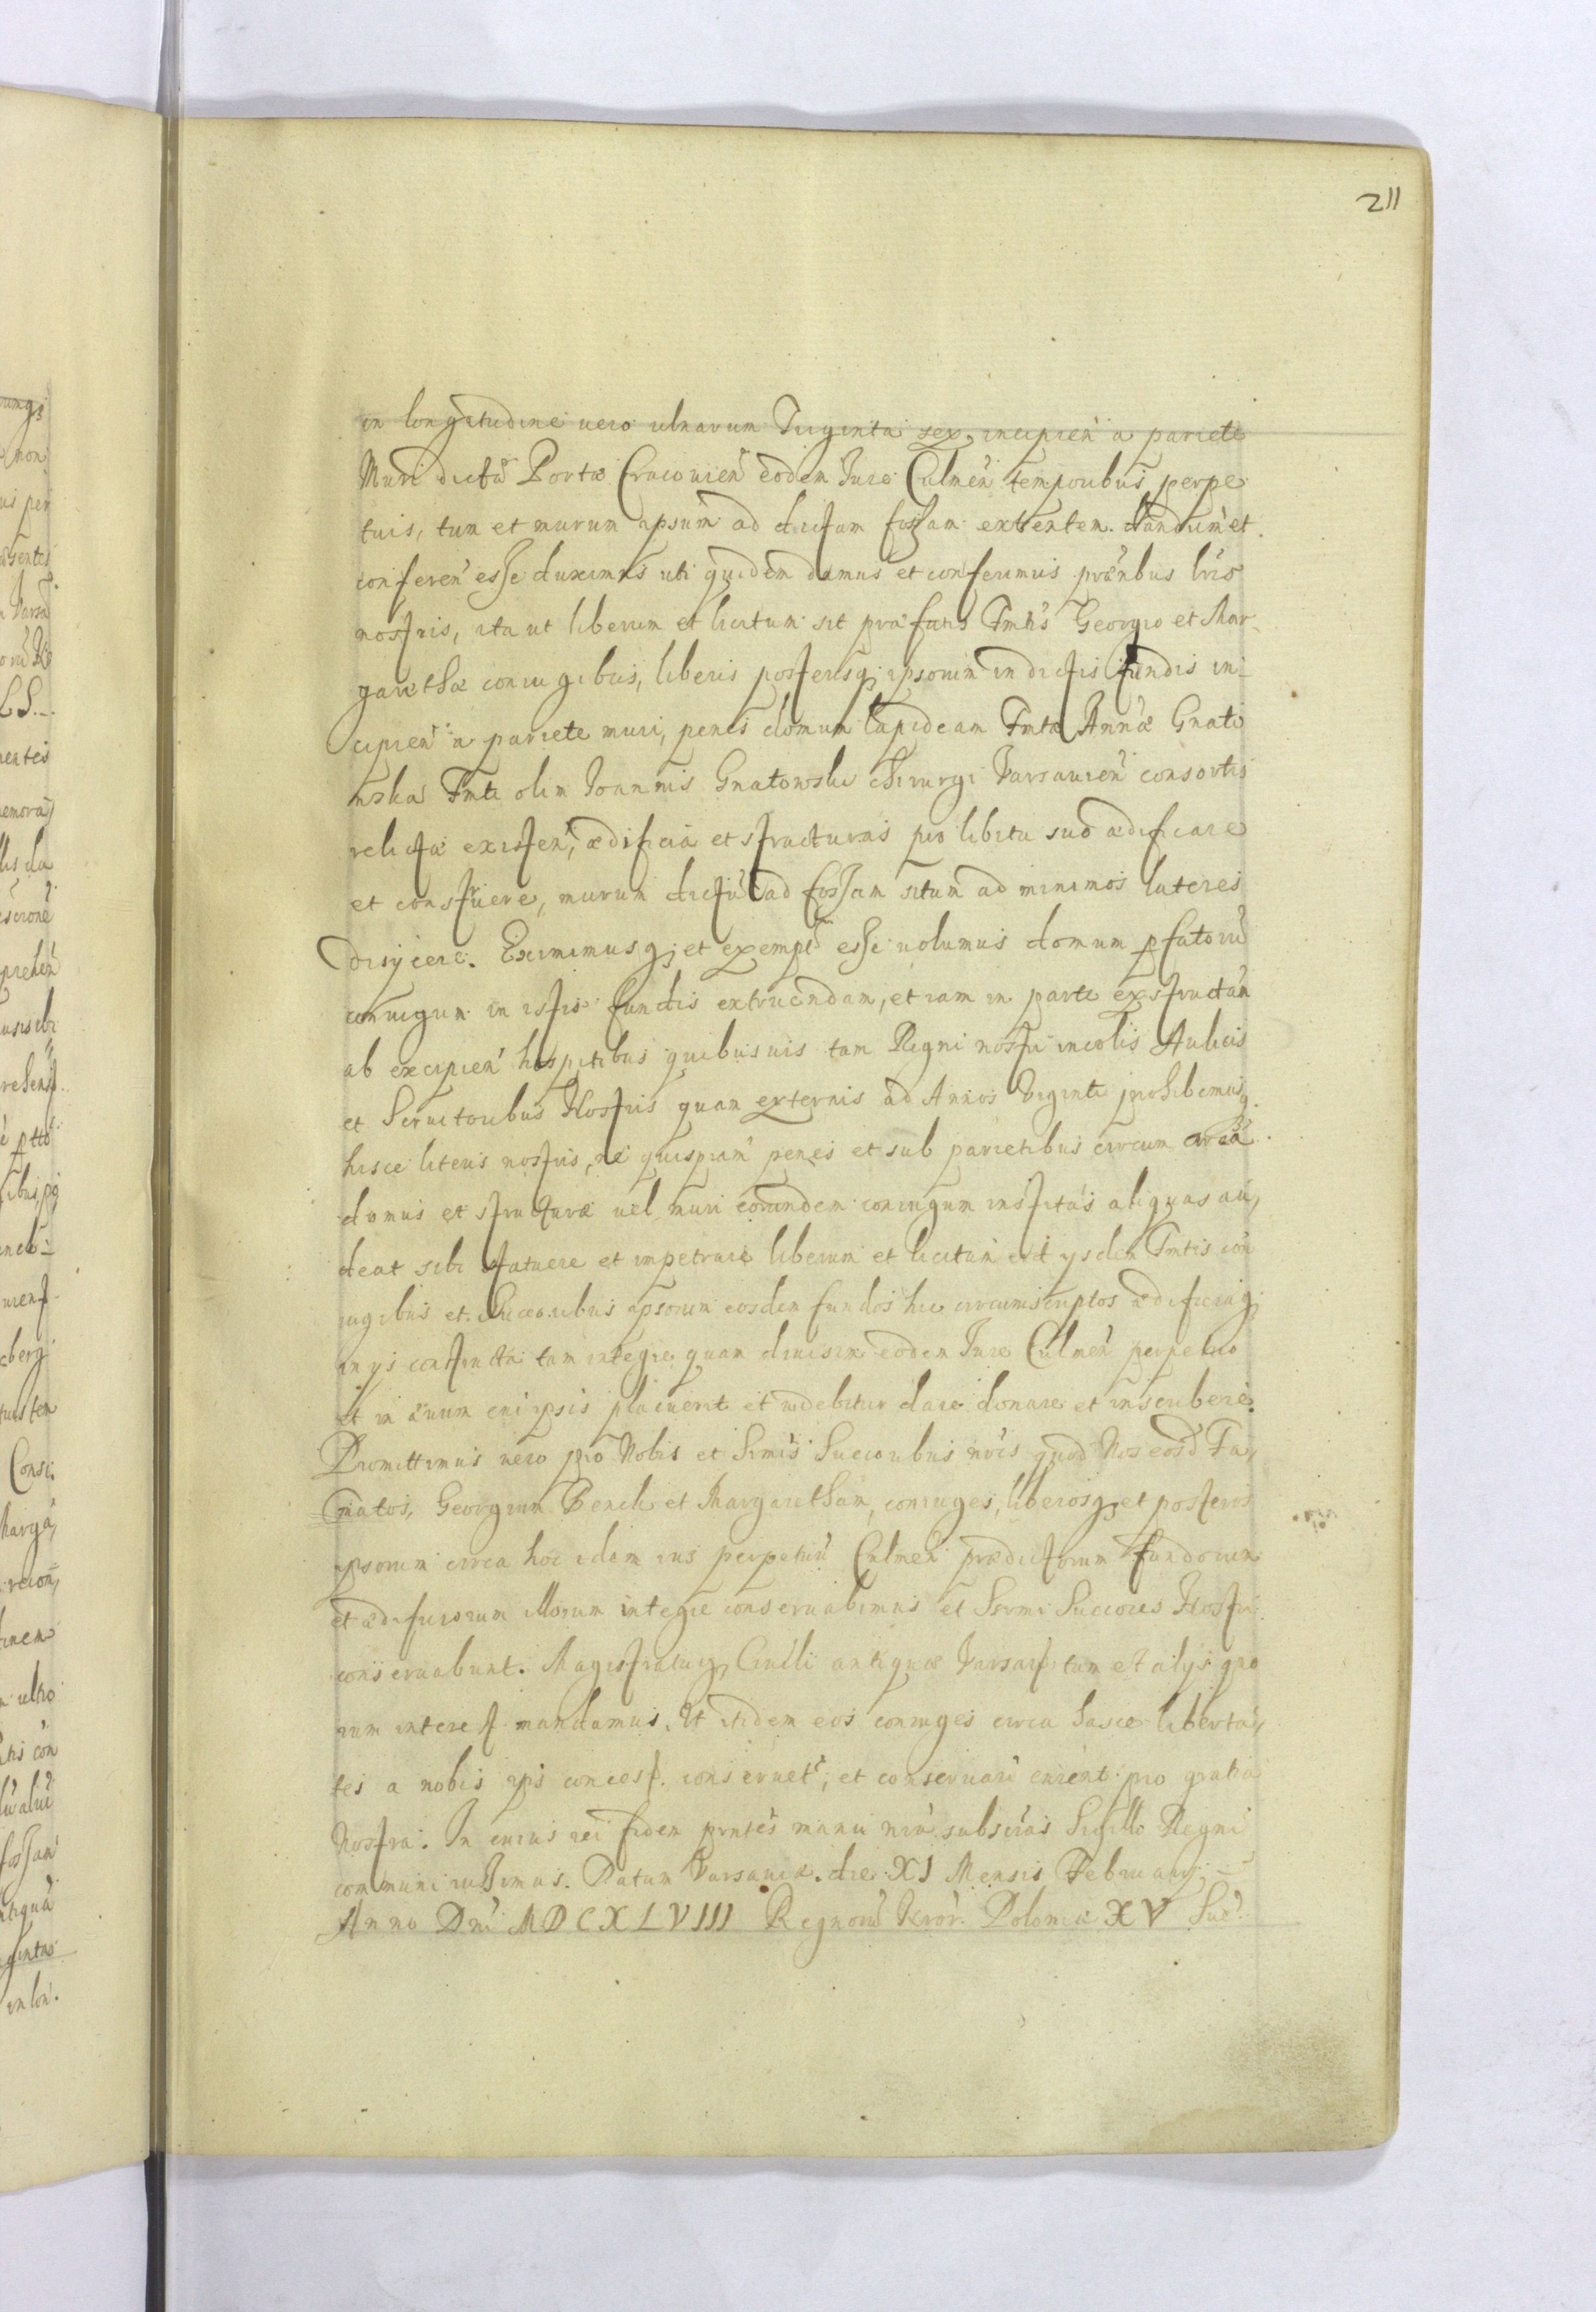 211
in longitudine uero ulnarum Triginta sex, incipień a pariete
Muri dictæ Portæ Cracouień eodem Iure Culmeń temporibus perpe
tuis, tum et murum ipsum ad dictam fossam extentem dandum et
conferen̄ esse duximus uti quidem damus et conferimus præn̄bus lris
nostris, ita ut liberum et licitum sit præfatis Fmtis Georgio et Mar-
garethæ coniugibus, liberis posterisq; ipsorum in dictis fundis in-
cipień a pariete muri, penes domum lapideam Fmtæ Annæ Gnato
wska Fmti olim Ioannis Gnatowski chirurgi Varsauień consortis
relictæ existeń, ædificia et structuras pro libitu suo ædificare
et construere, murum dictū ad fossam situm ad minimos lateres
disijcere. Eximimusq; et exempt esse uolumus domum pfatorū
coniugum in istis fundis extruendam, et iam in parte exstructam
ab excipień hospitibus quibusuis tam Regni nostri incolis Aulicis
et Seruitoribus Nostris quam externis ad Annos Viginti prohibemusq;
hisce literis nostris, ne quispiam penes et sub parietibus circum circa
domus et structuræ uel muri eorundem coniugum institas aliquas au,
deat sibi statuere et impetrare liberum et licitum erit ysdem Fmtis con
iugibus et Succoribus ipsorum eosdem fundos hic circumscriptos ædificiaq;
in ys constructa tam integre quam diuisim eodem Iure Culmeń perpetuo
et in æuum cui ipsis placuerit et uidebitur dare donare et inscribere.
Promittimus uero pro Nobis et Srmis Succoribus nris quod Nos eosd Fa,
matos, Georgium Bench et Margaretham, coniuges, liberosq; et posteros
ipsorum circa hoc idem ius perpetuū Culmeń prædictorum fundorum
et ædificiorum illorum integre conseruabimus et Srmi Succores Nostri
conseruabunt. Magistratuiq; Ciuili antiquæ Varsau tum et alys quo
rum interest mandamus, Ut itidem eos coniuges circa hasce liberta,
tes a nobis ipis concess. conseruet, et conseruari curent pro gratia
Nostra. In cuius rei fidem pntes manu nra subscras Sigillo Regni
communiri iussimus. Datum Varsauiæ. die XI Mensis Februarij
Anno Dni MDCXLVIII Regnorū Nror. Poloniæ XV Suæ